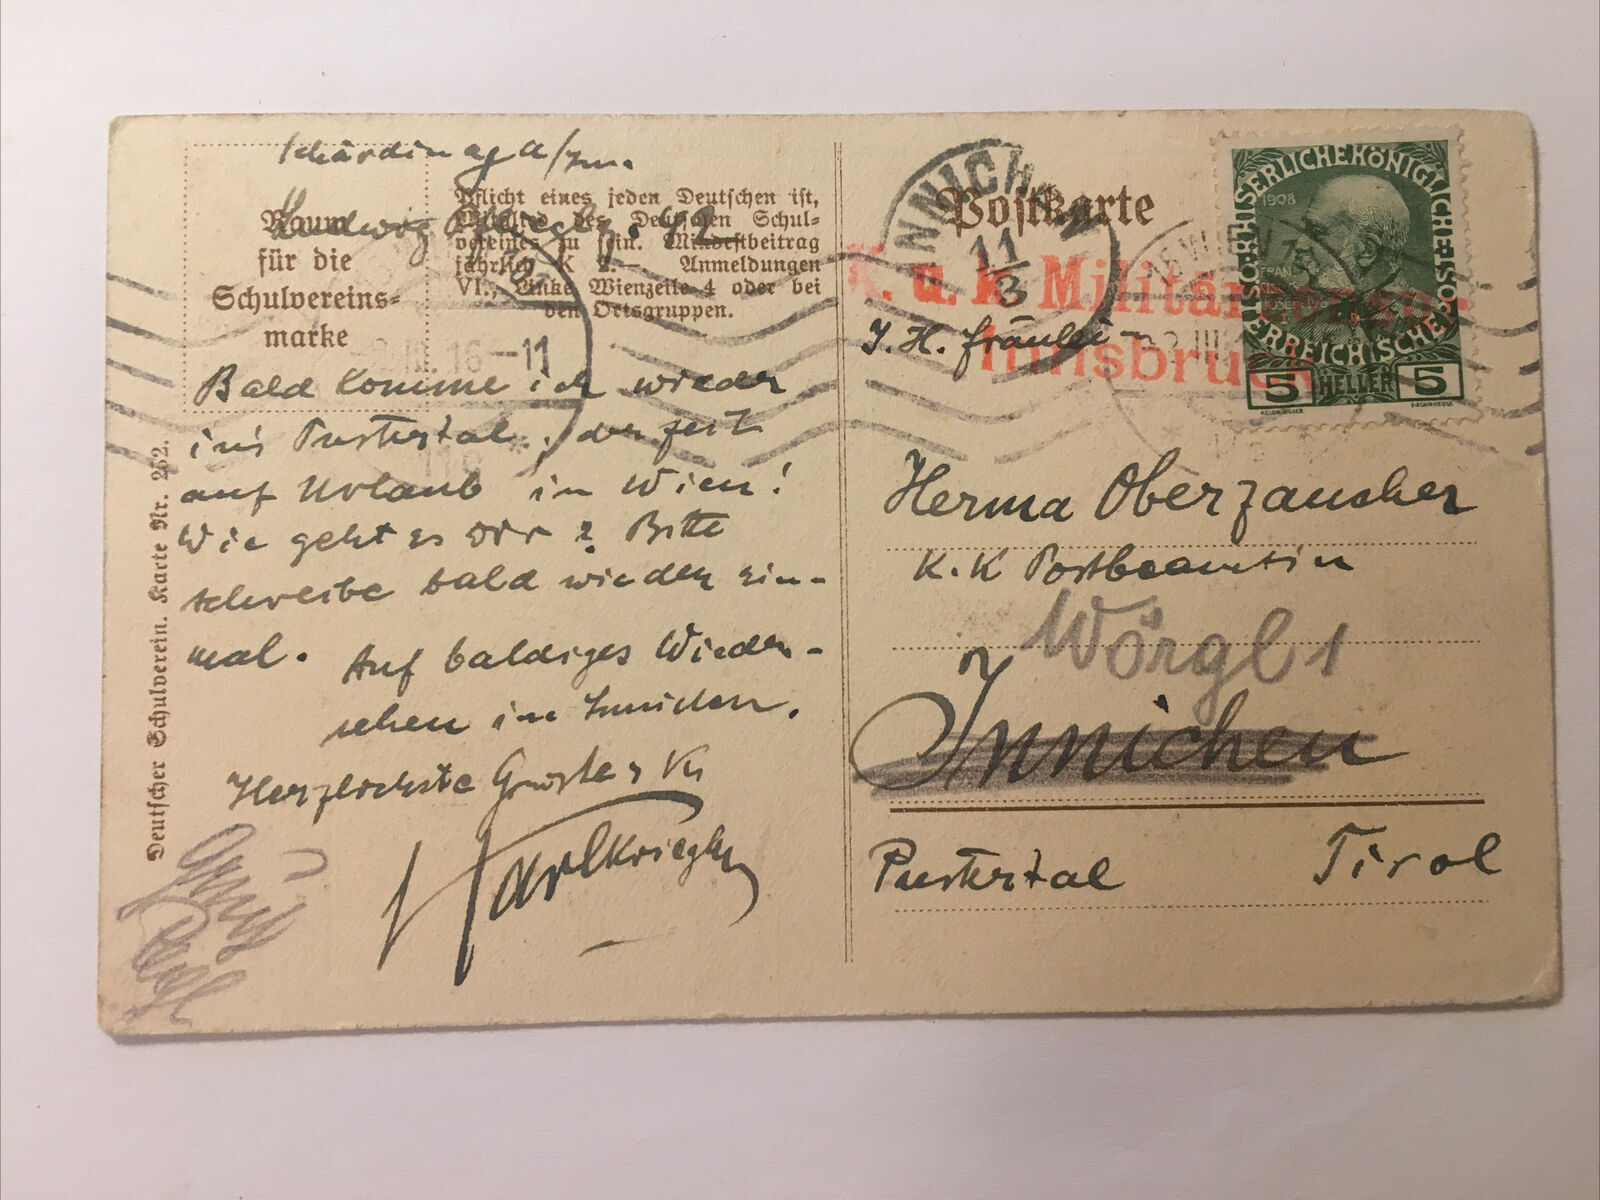 Schärding a/Inn.
Raum
für die
Schulvereins=
marke
Pflicht eines jeden Deutschen ist,
Mitglied des Deutschen Schul=
vereines zu sein. Mindestbeitrag
jährlich K 2.— Anmeldungen
VI., Linke Wienzeile 4 oder bei
den Ortsgruppen.
III. 16-11
Bald komme ich wieder
ins Pustertal, derzeit
auf Urlaub in Wien!
Wie geht es Dir? Bitte
schreibe bald wieder ein-
mal. Auf baldiges Wieder-
sehen in
Herzlichste Grüsse
Karl Kriegler
Gruß
Deutscher Schulverein. Karte Nr. 252.
Postkarte
INNICHEN
11
3
K. u. k. Militärzensur
Innsbruck
KAISERLICHE KÖNIGLICHE ÖSTERREICHISCHE POST
1908
FRANZ JOSEF I
5 HELLER 5
I. H. Fräulein
Herma Oberzaucher
K. K Postbeamtin
Wörgl 1
Innichen
Pustertal Tirol